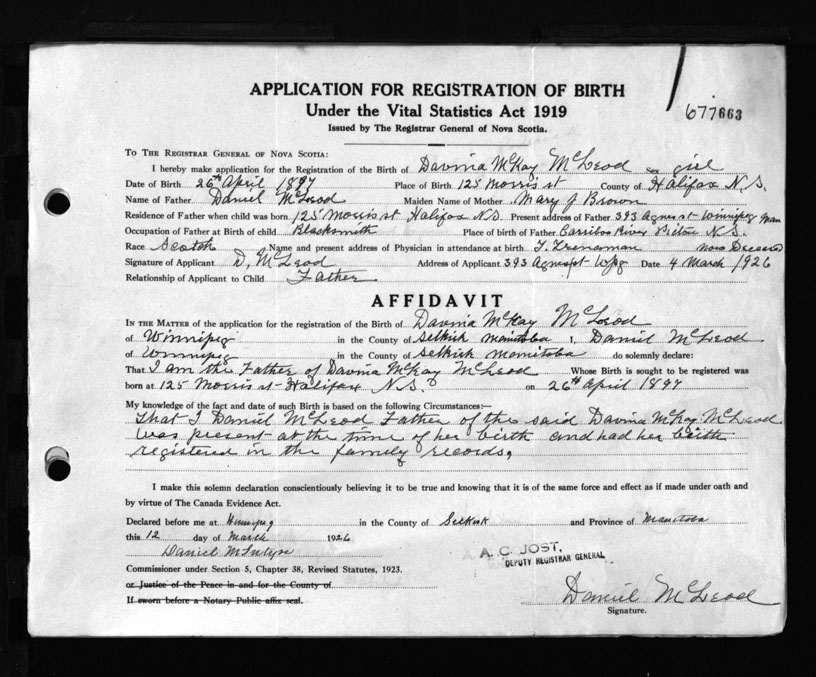 APPLICATION FOR REGISTRATION OF BIRTH
Under the Vital Statistics Act 1919
677663
Issued by The Registrar General of Nova Scotia.
To The Registrar General of Nova Scotia:
I hereby make application for the Registration of the Birth of Davina McKay McLeod sex girl
Date of Birth 26th April 1897 Place of Birth 125 Morris st County of Halifax N.S.
Name of Father Daniel McLeod Maiden Name of Mother Mary J Brown
Residence of Father when child was born 125 Morris st Halifax N.S. Present address of Father 393 Agnes st Winnipeg Man
Occupation of Father at Birth of child Blacksmith Place of birth of Father Carriboo River Pictou N.S.
Race Scotch Name and present address of Physician in attendance at birth T. Trenaman now Deceased
Signature of Applicant D. McLeod Address of Applicant 393 Agnes st Wpg Date 4 March 1926
Relationship of Applicant to Child Father
AFFIDAVIT
In the Matter of the application for the registration of the Birth of Davina McKay McLeod
of Winnipeg in the County of Selkirk Manitoba I, Daniel McLeod
of Winnipeg in the County of Selkirk Manitoba do solemnly declare:
That I am the Father of Davina McKay McLeod Whose Birth is sought to be registered was
born at 125 Morris st Halifax N.S. on 26th April 1897
My knowledge of the fact and date of such Birth is based on the following Circumstances:—
That I Daniel McLeod Father of the said Davina McKay McLeod
was present at the time of her birth and had her birth
registered in the family records.
I make this solemn declaration conscientiously believing it to be true and knowing that it is of the same force and effect as if made under oath and
by virtue of The Canada Evidence Act.
Declared before me at Winnipeg in the County of Selkirk and Province of Manitoba
this 12 day of March 1926
Daniel McIntyre
A. C. JOST,
DEPUTY REGISTRAR GENERAL
Commissioner under Section 5, Chapter 38, Revised Statutes, 1923.
or Justice of the Peace in and for the County of
If sworn before a Notary Public affix seal.
Daniel McLeod
Signature.